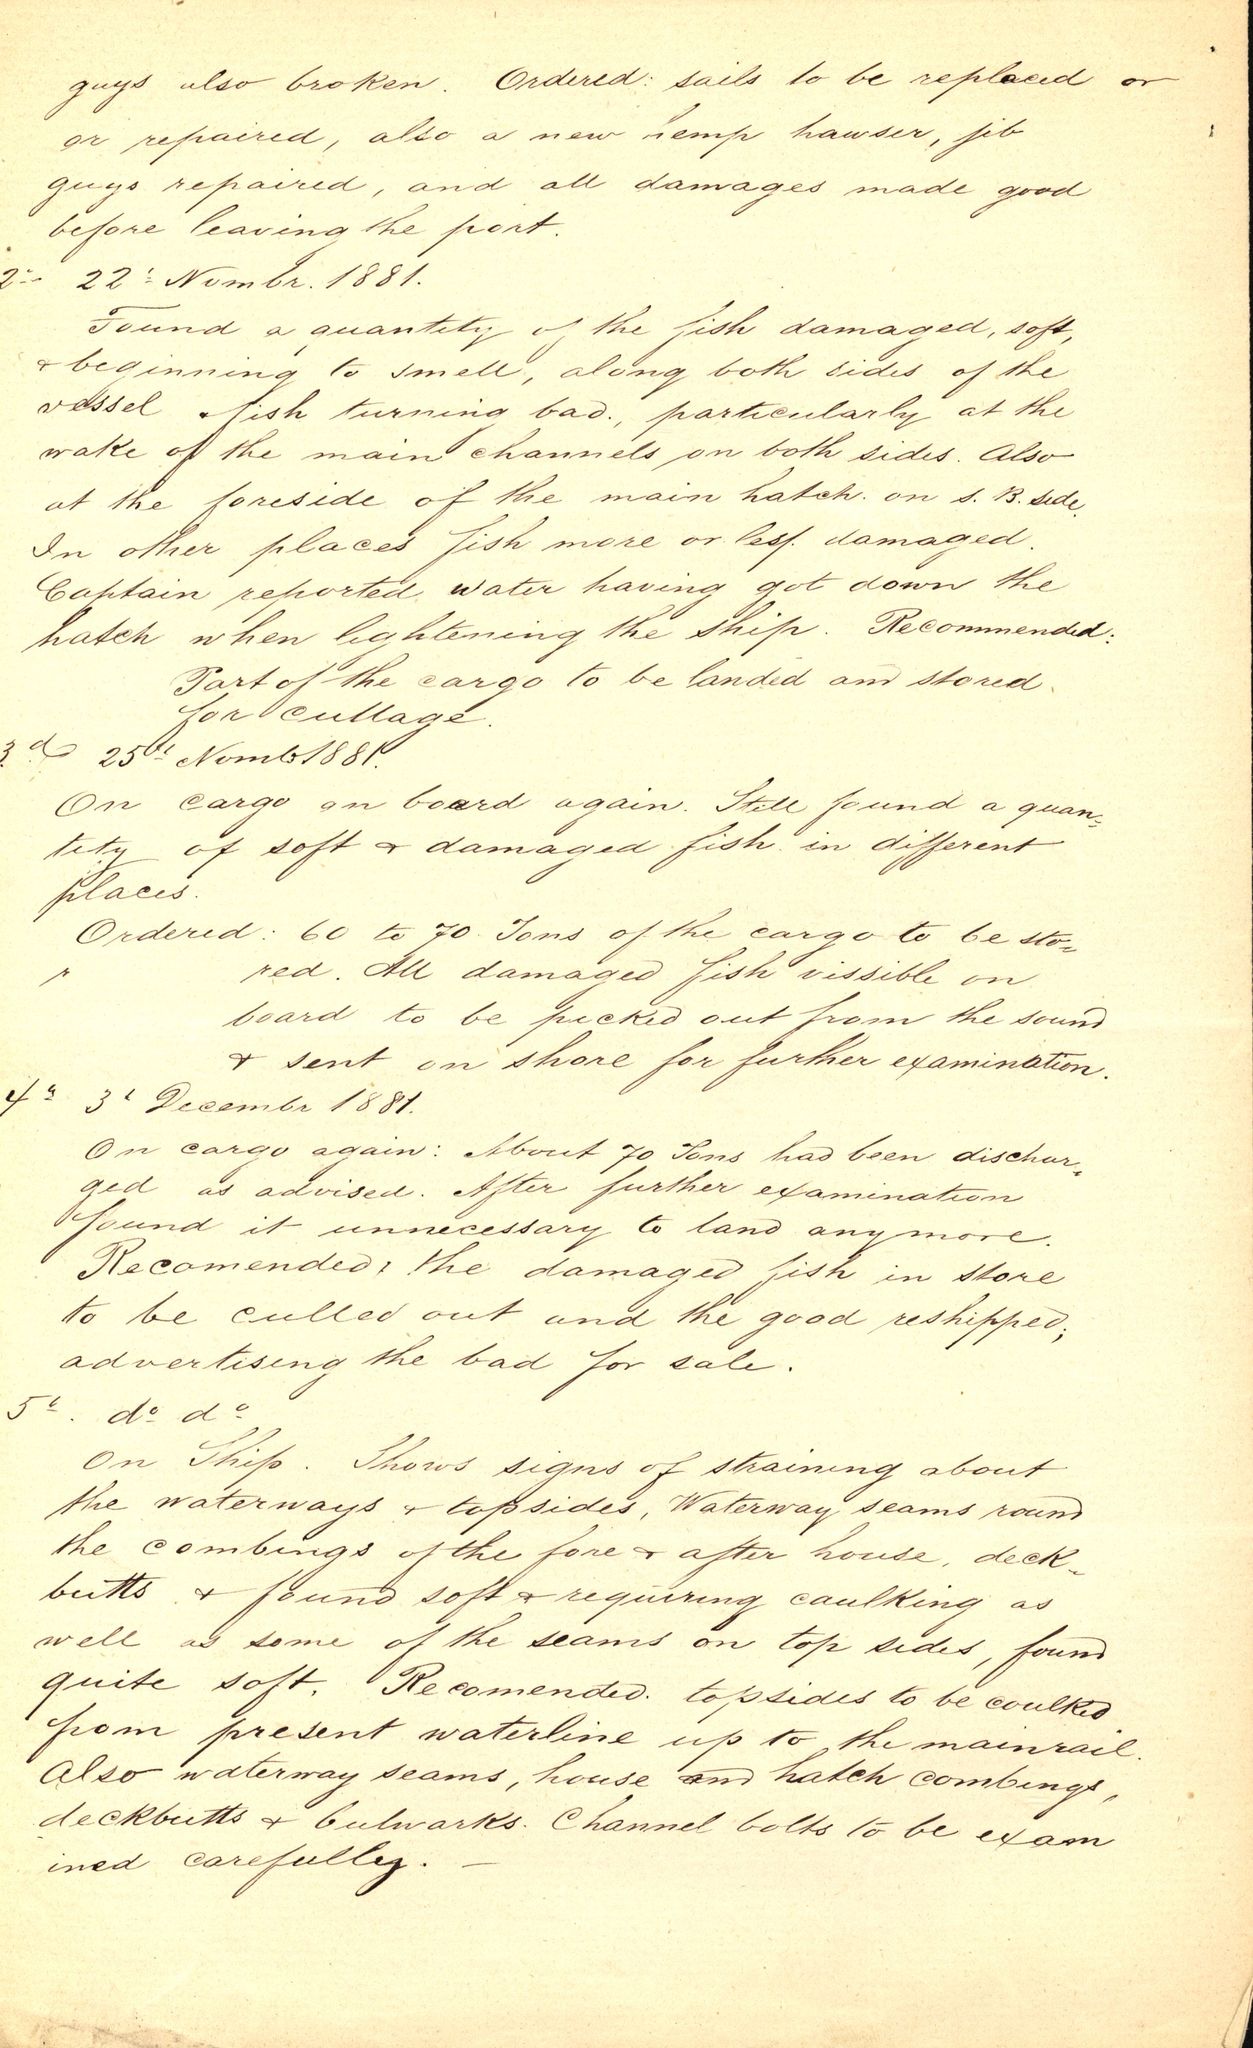 guys also broken. Ordered: sails to be replaced or
or repaired, also a new hemp hawser, jib
guys repaired, and all damages made good
before leaving the port.
2ⁿ 22ᵗ Nombr. 1881.
Found a quantity of the fish damaged, soft,
& beginning to smell, along both sides of the
vessel fish turning bad., particularly at the
wake of the main channels on both sides. Also
at the foreside of the main hatch on S. B. side.
In other places fish more or less damaged.
Captain reported water having got down the
hatch when lightening the ship. Recommended:
Part of the cargo to be landed and stored
for cullage.
3.ᵈ 25ᵗ Nomb 1881.
On cargo on board again. Still found a quan-
tity of soft & damaged fish in different
places.
Ordered: 60 to 70 Tons of the cargo to be sto-
red. All damaged fish vissible on
board to be picked out from the sound
& sent on shore for further examination.
4ᵗ 3ᵗ Decembr 1881.
On cargo again: About 70 Tons had been dischar-
ged as advised. After further examination
found it unnecessary to land any more.
Recomended: the damaged fish in store
to be culled out and the good reshipped;
advertising the bad for sale.
5ᵗ. dᵒ dᵒ
On Ship. Shows signs of straining about
the waterways & topsides, Waterway seams round
the combings of the fore & after house, deck-
butts & found soft & requiring caulking as
well as some of the seams on top sides, found
quite soft. Recomended. topsides to be coulked
from present waterline up to the mainrail.
Also waterway seams, house and hatch combings,
deckbutts & bulwarks. Channel bolts to be exam
ined carefully. —